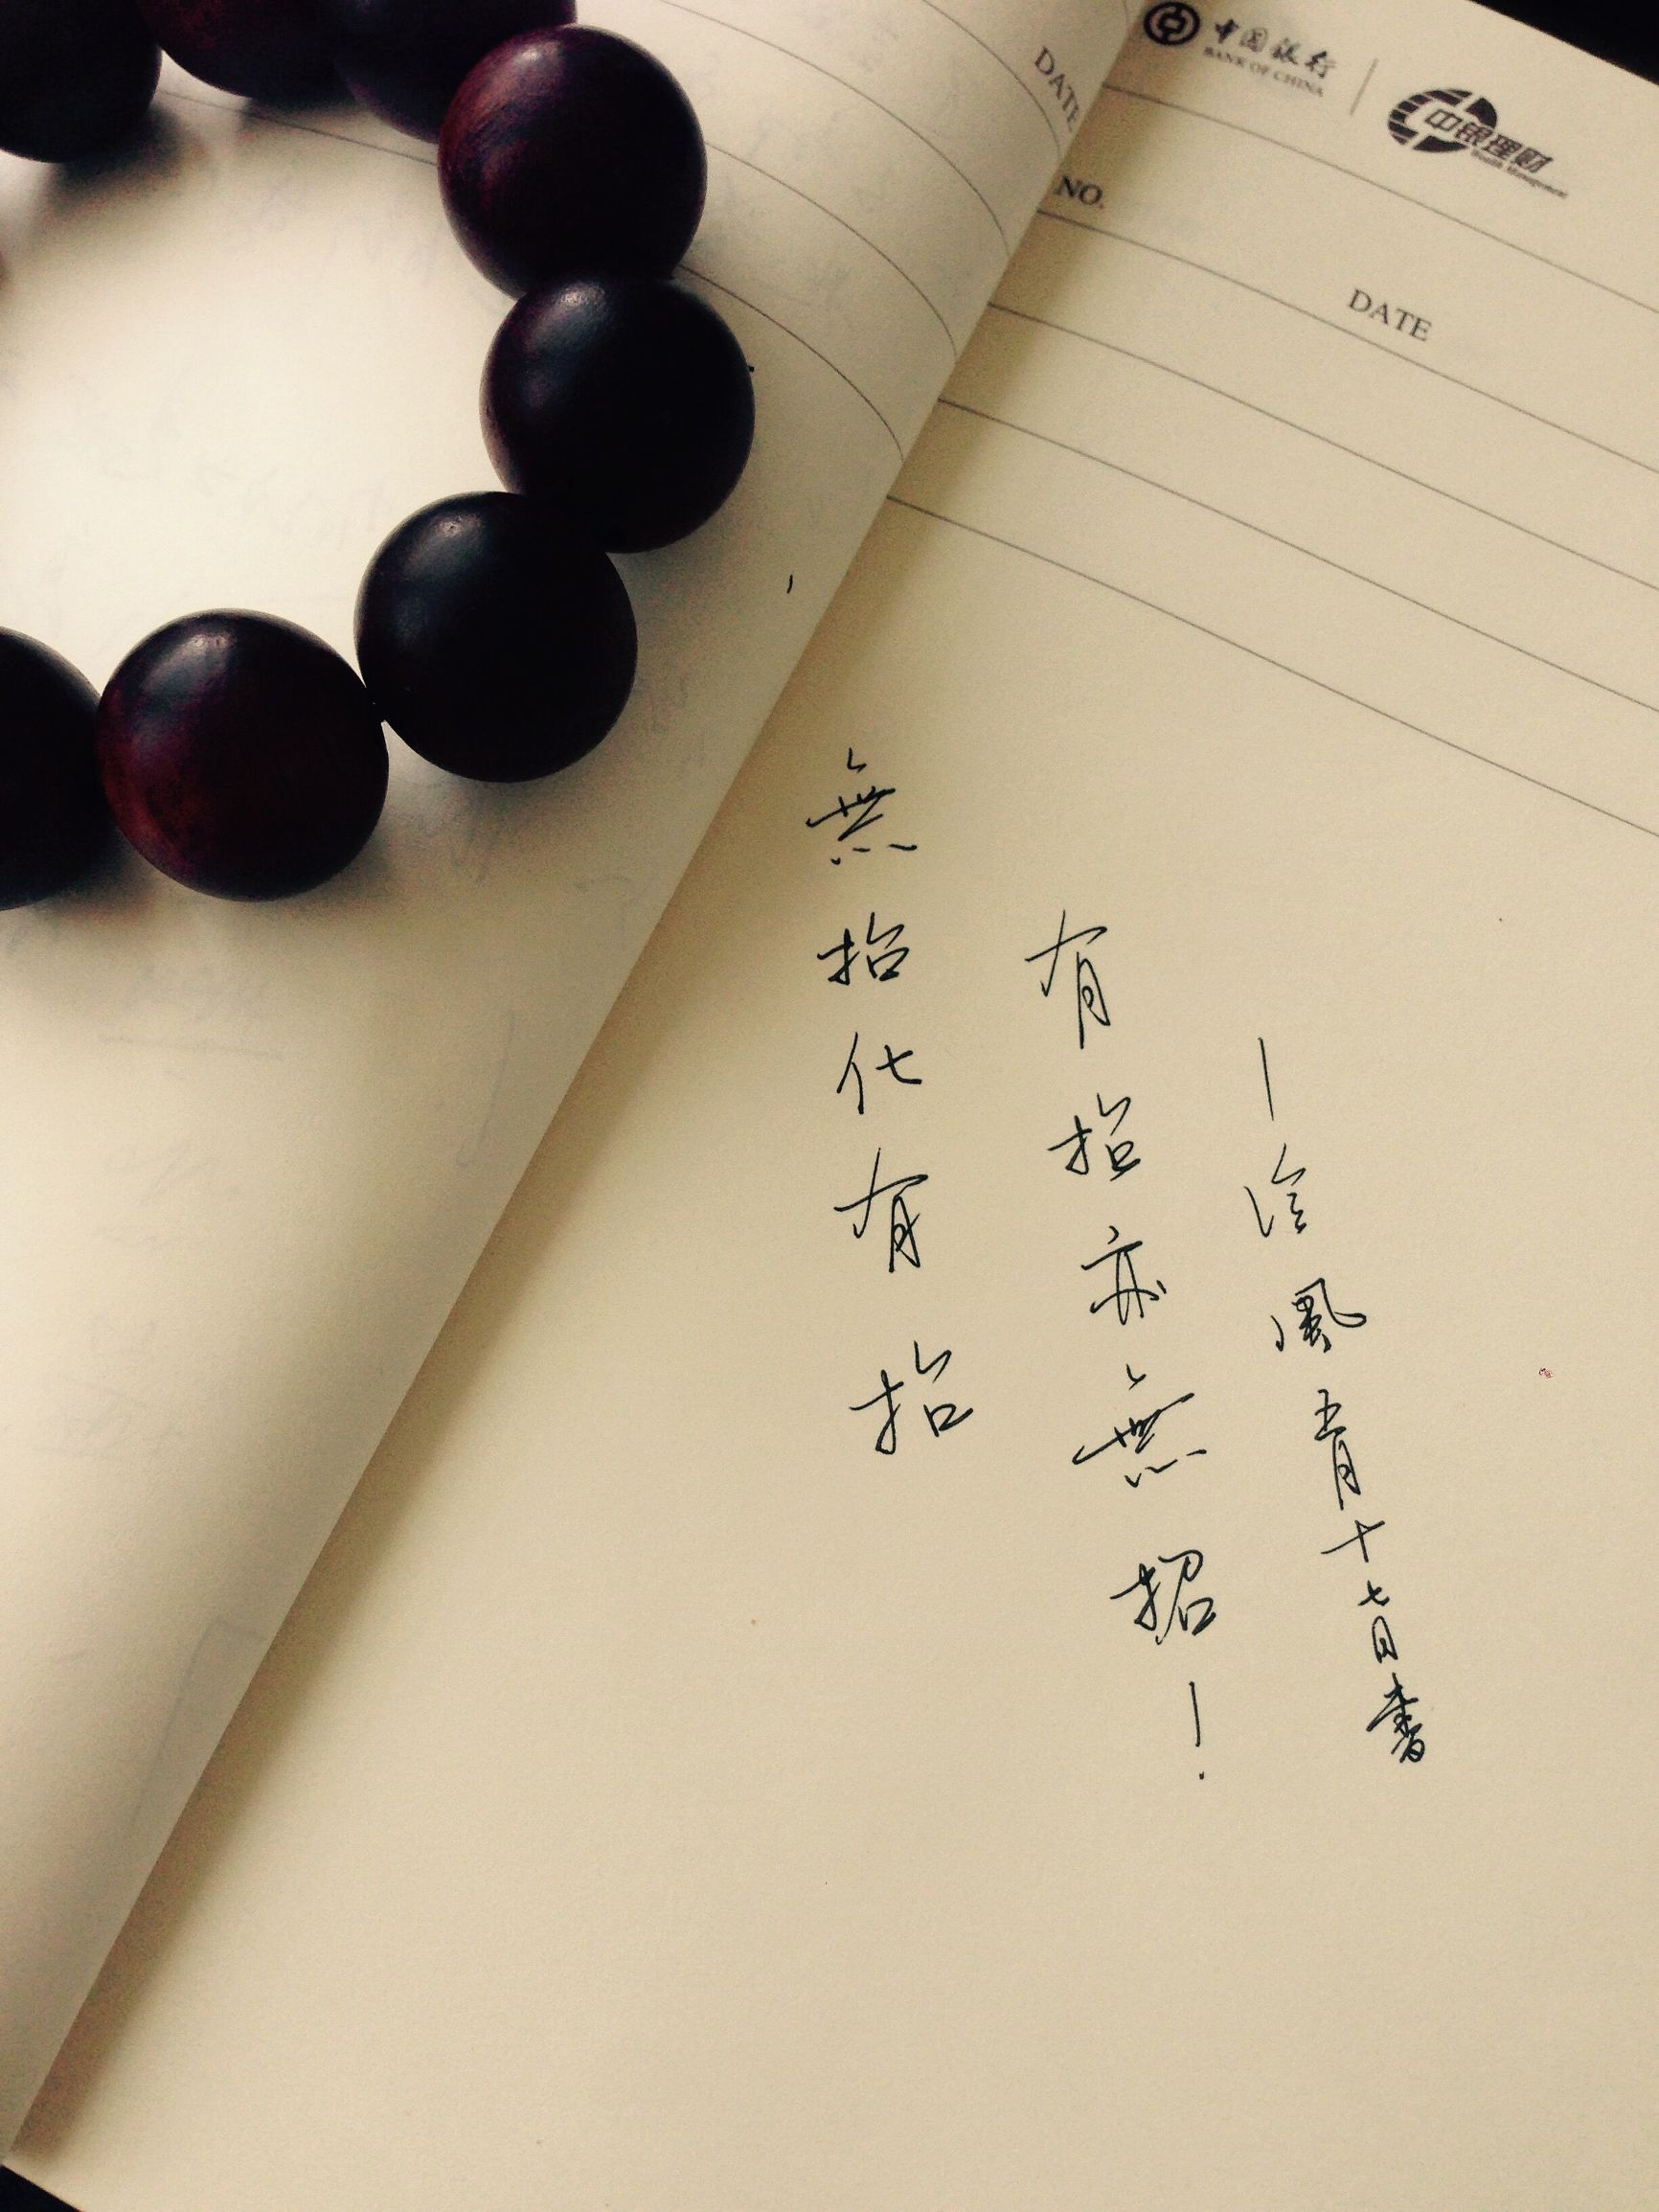 中国银行
BANK OF CHINA
中银理财
Wealth Management
DATE
NO.
DATE
無招化有招
有招亦無招！
—冷風五月十七日書